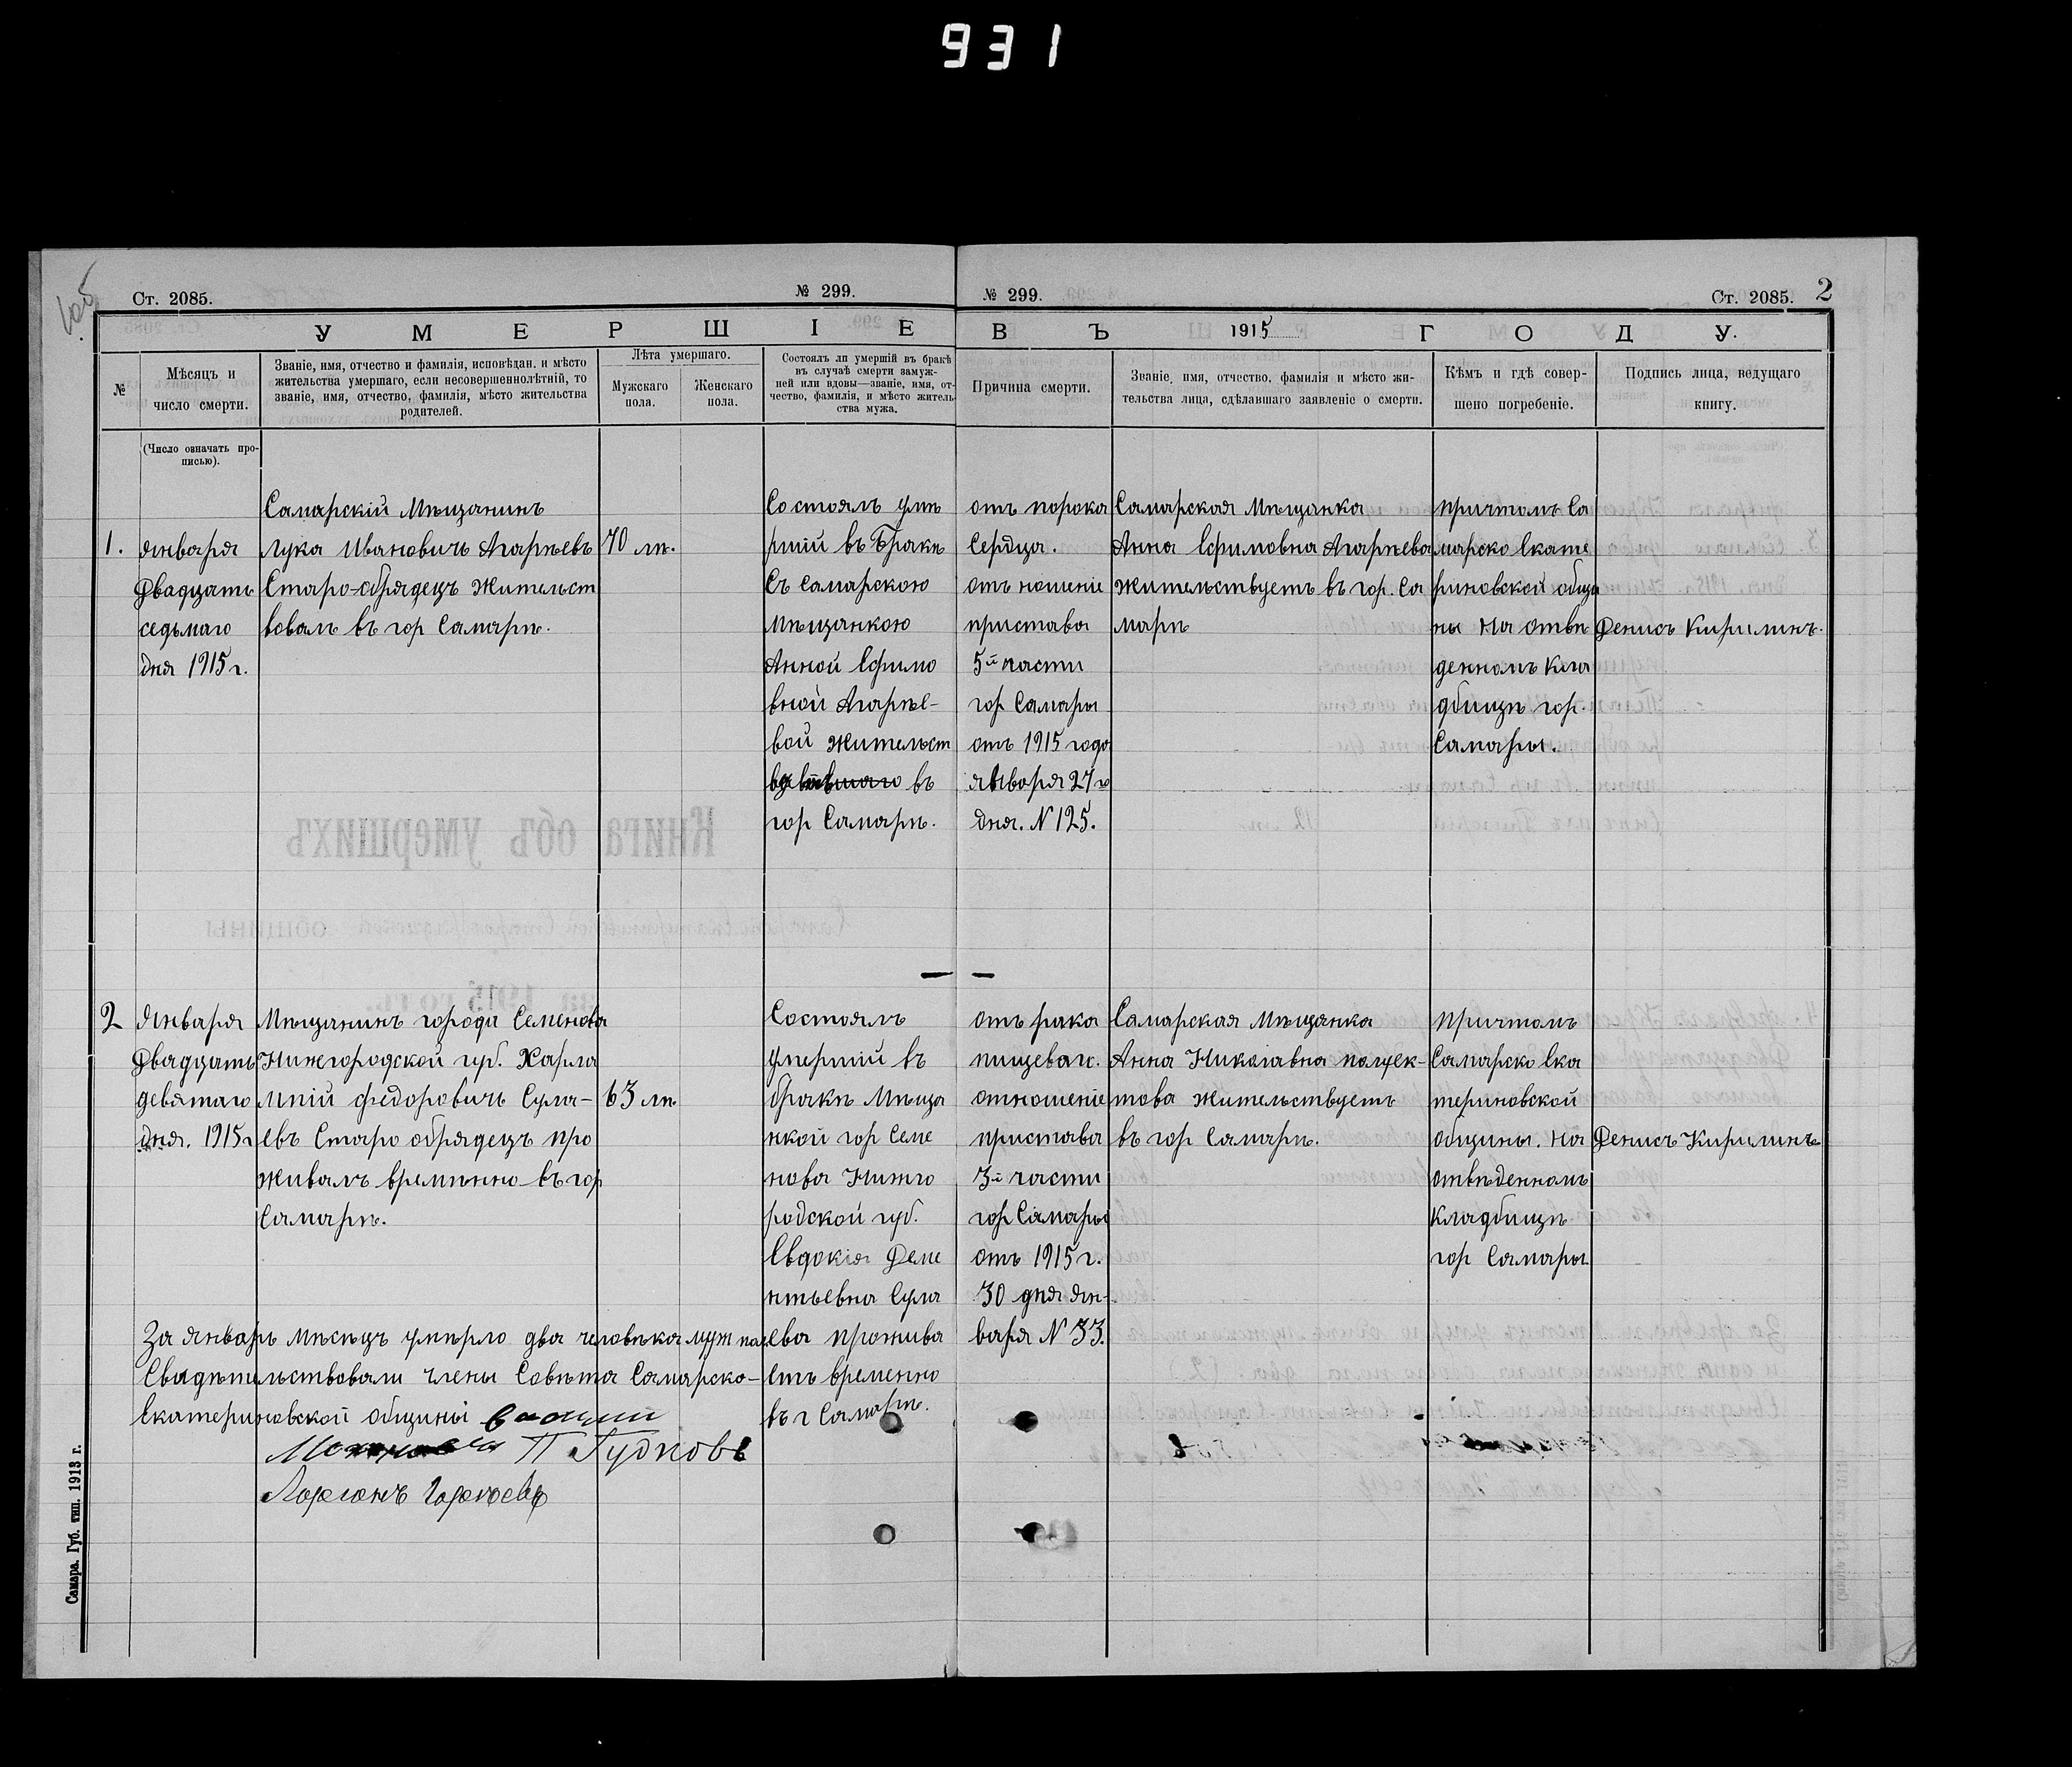 931
Ст. 2085.
№ 299.
№ 299.
Ст. 2085. 2
УМЕРШІЕ ВЪ 1915 ГОДУ.
№
Мѣсяцъ и
число смерти.
(Число означать про-
писью).
Званіе, имя, отчество и фамилія, исповѣдан. и мѣсто
жительства умершаго, если несовершеннолѣтній, то
званіе, имя, отчество, фамилія, мѣсто жительства
родителей.
Лѣта умершаго.
Мужскаго
пола.
Женскаго
пола.
Состоялъ лп умершій въ бракѣ
въ случаѣ смерти замуж-
ней или вдовы—званіе, имя, от-
чество, фамилія, и мѣсто житель-
ства мужа.
Причина смерти.
Званіе, имя, отчество, фамилія и мѣсто жи-
тельства лица, сдѣлавшаго заявленіе о смерти.
Кѣмъ и гдѣ совер-
шено погребеніе.
Подпись лица, ведущаго
книгу.
1.
января
Двадцать
седьмаго
дня 1915 г.
Самарскій Мѣщанинъ
Лука Ивановичъ Агарѣевъ
Старо-обрядецъ Жительст
вовалъ въ гор Самарѣ.
70 лѣ.
Состоялъ уме
ршій въ Бракѣ
Съ Самарскою
Мѣщанкою
Анной Ефимо
вной Агарѣе-
вой Жительст
въ
гор Самарѣ.
отъ порока
Сердца.
отъ ношеніе
пристава
5й части
гор Самары
отъ 1915 года
января 27го
дня. N 125.
Самарская Мѣщанка
Анна Ефимовна Агарѣева
Жительствуетъ въ гор. Са
марѣ
причтомъ Са
марско Екате
риновской общи
ны на отвѣ
денномъ кла
дбищѣ гор.
Самары.
Денисъ Кирилинъ.
2
Января
Двадцать
девятаго
дня. 1915 г
Мѣщанинъ города Семенова
Нижгородской губ. Харла
мпій Федоровичъ Сула-
евъ Старо обрядецъ про
живалъ времѣнно въ гор
Самарѣ.
63 лѣ
Состоялъ
умершій въ
бракѣ Мѣща
нкой гор Семе
нова Нижго
родской губ.
Евдокія Деме
нтьевна Сула
ева прожива
етъ временно
въ г Самарѣ.
отъ рака
пищевар.
отношеніе
пристава
3й части
гор Самары
отъ 1915 г.
30 дня Ян-
варя N 33.
Самарская Мѣщанка
Анна Николавна полуек-
това Жительствуетъ
въ гор Самарѣ.
причтомъ
Самарско Ека
териновской
общины. на
отвѣденномъ
кладбищѣ
гор Самары
Денисъ Кирилинъ
За январь мѣсецъ умѣрло два человѣка муж пол.
Свидѣтельствовали члены Совѣта Самарско-
Екатериновской общины
П Гудковъ
Самара. Губ. тип. 1913 г.